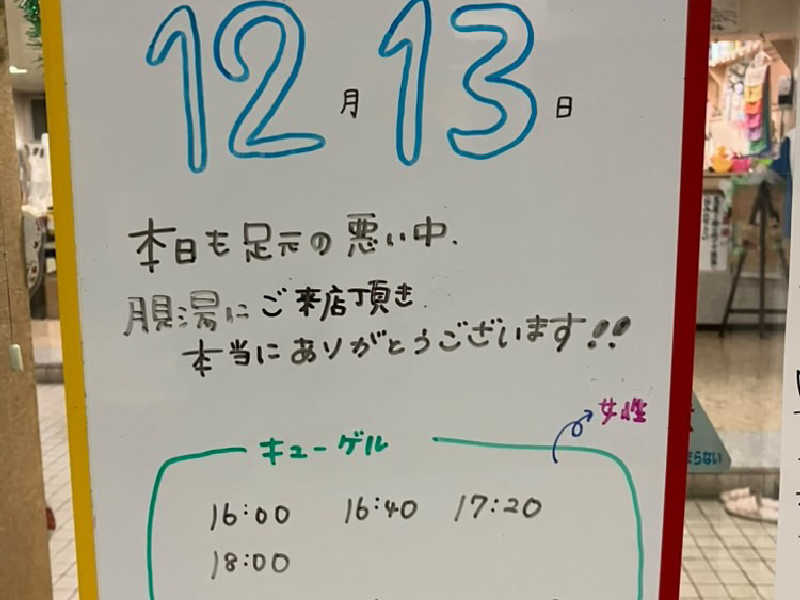 12月13日
本日も足元の悪い中、
湯にご来店頂き
本当にありがとうございます!!
女性
キューゲル
16:00 16:40 17:20
18:00
まらない